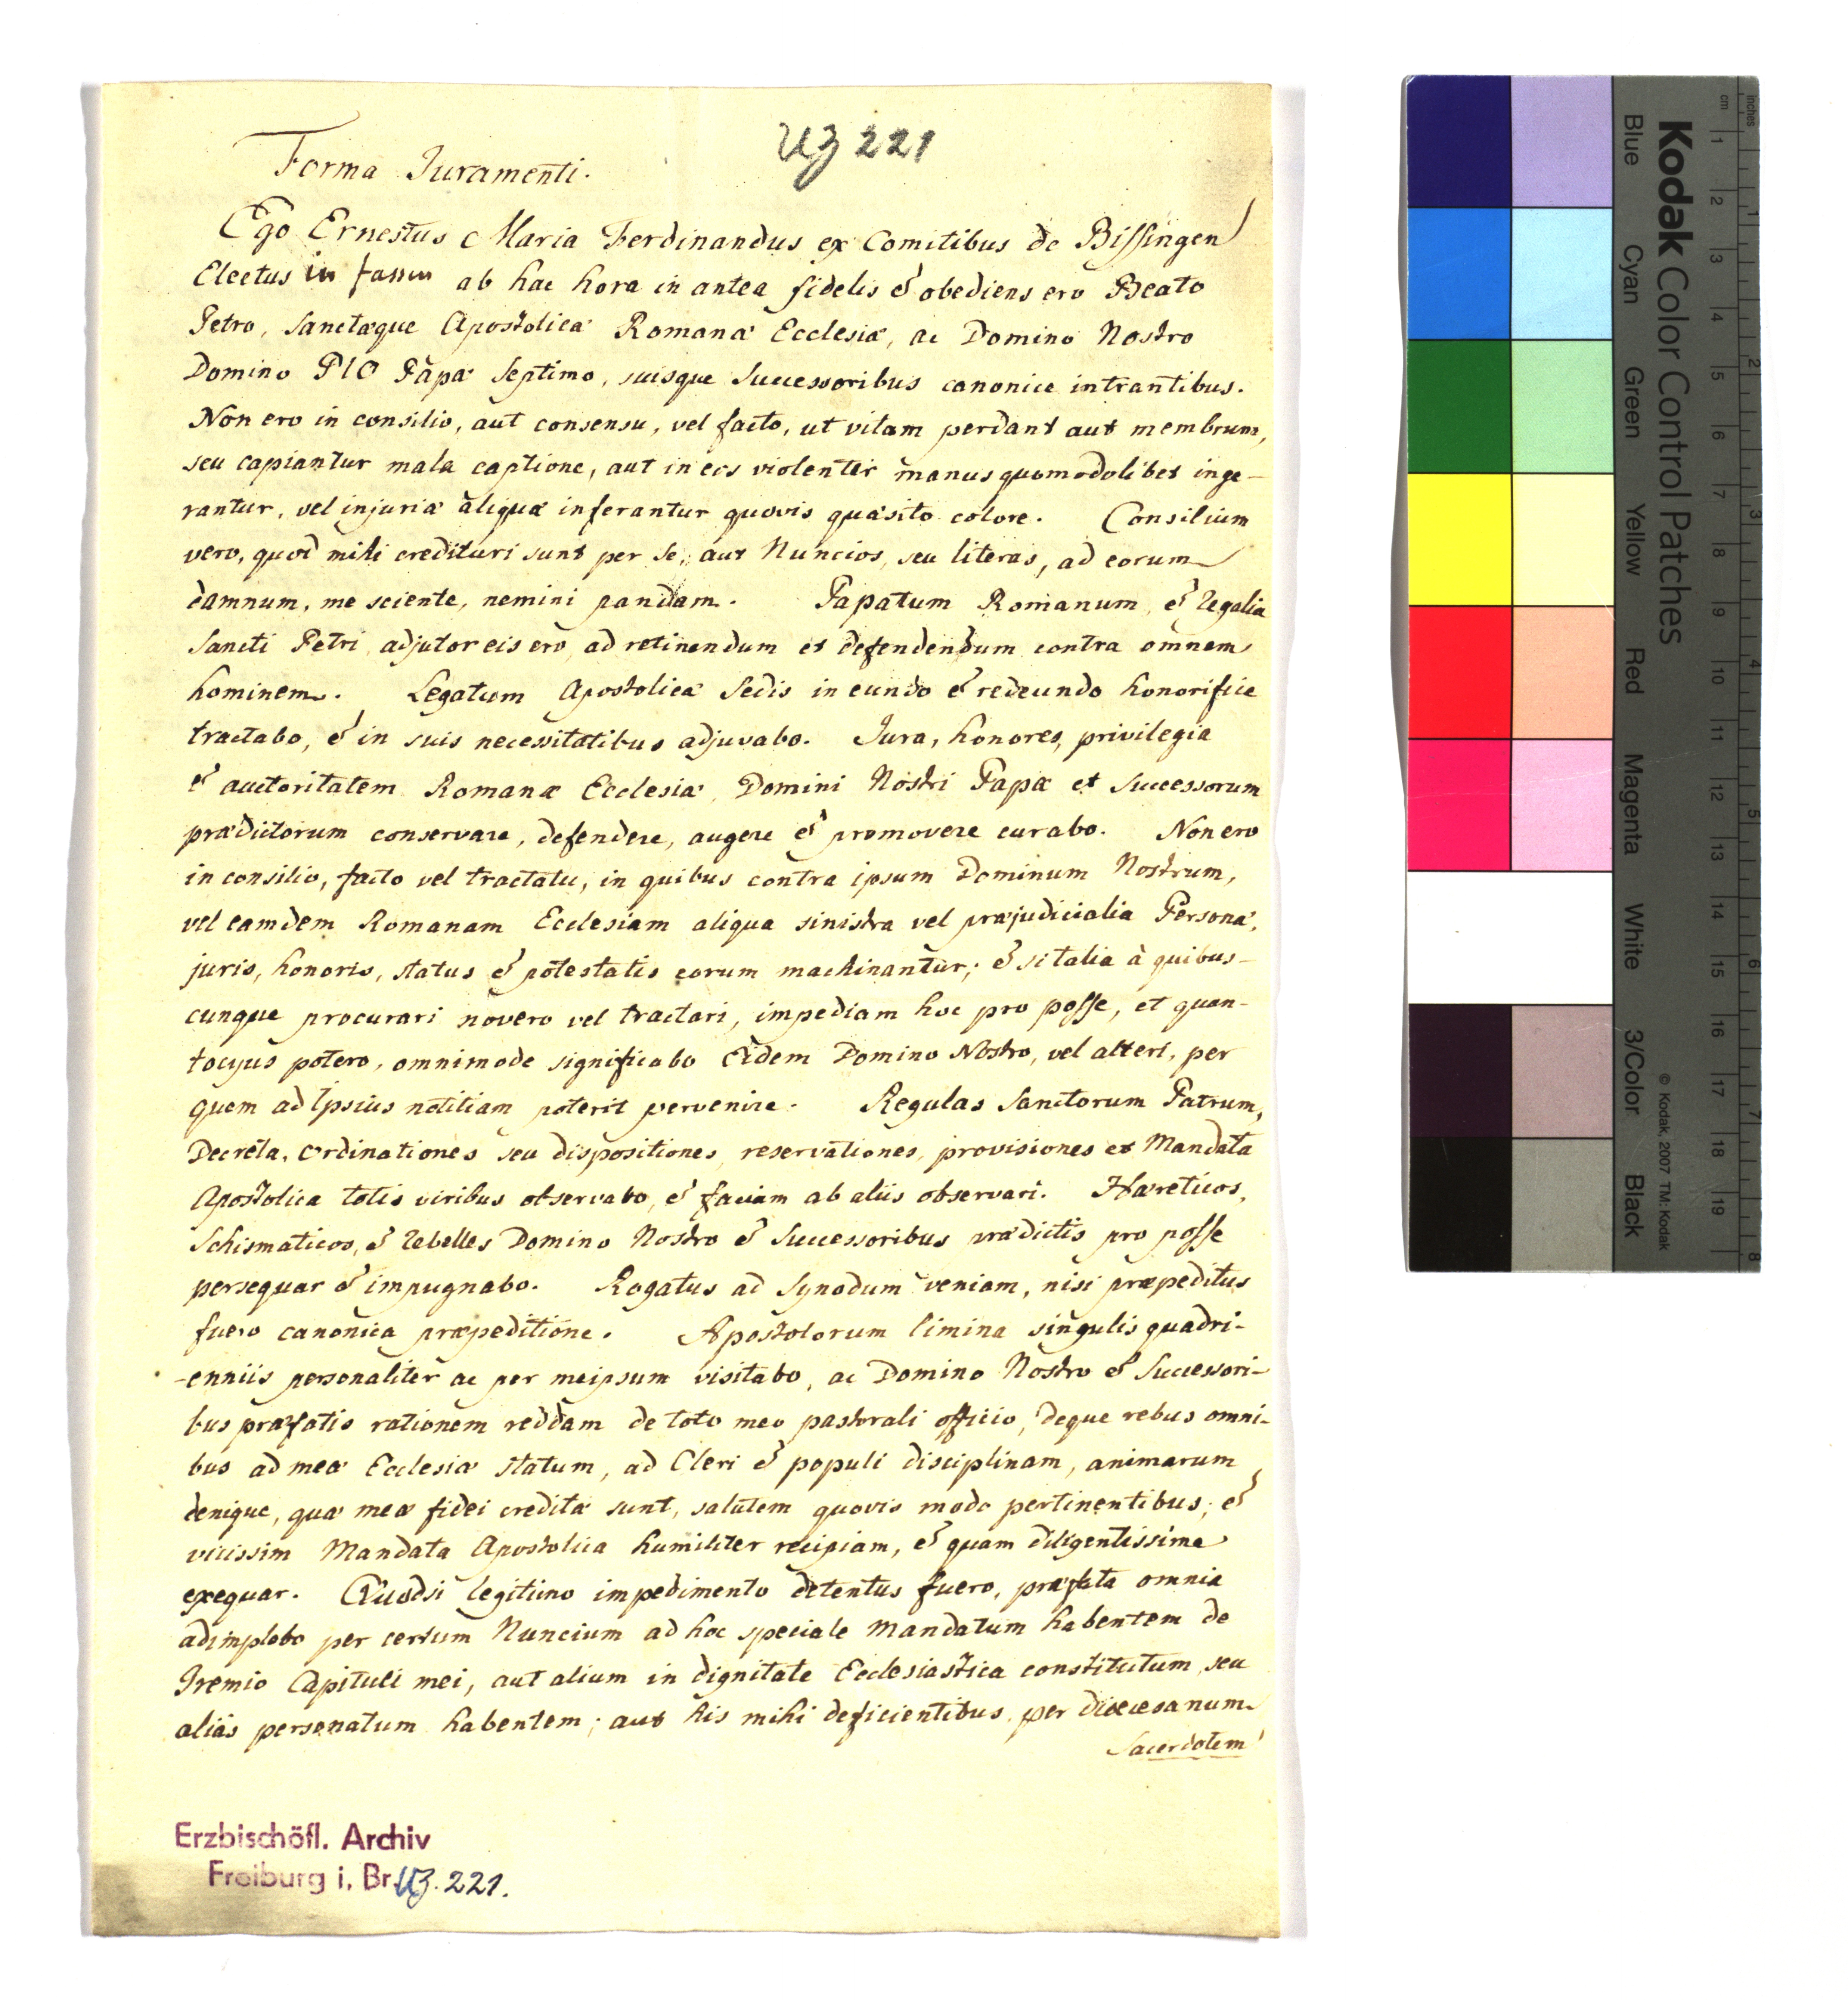 UZ 221
Forma Juramenti.
Ego Ernestus Maria Ferdinandus ex Comitibus de Bissingen
Electus in ab hac hora in antea fidelis & obediens ero Beato
Petro, Sanctæque Apostolicæ Romanæ Ecclesiæ, ac Domino Nostro
Domino PIO Papæ Septimo, suisque Successoribus canonice intrantibus.
Non ero in consilio, aut consensu, vel facto, ut vitam perdant aut membrum,
seu capiantur mala captione, aut in eos violenter manus quomodolibet inge-
rantur, vel injuriæ aliquæ inferantur quovis quæsito colore. Consilium
vero, quod mihi credituri sunt per Se, aut Nuncios, seu literas, ad eorum
damnum, me sciente, nemini pandam. Papatum Romanum, & Regalia
Sancti Petri adjutor eis ero ad retinendum et defendendum contra omnem
hominem. Legatum Apostolicæ Sedis in eundo & redeundo honorifice
tractabo, & in suis necessitatibus adjuvabo. Jura, honores, privilegia
& auctoritatem Romanæ Ecclesiæ, Domini Nostri Papæ et Successorum
prædictorum conservare, defendere, augere & promovere curabo. Non ero
in consilio, facto vel tractatu, in quibus contra ipsum Dominum Nostrum,
vel eamdem Romanam Ecclesiam aliqua sinistra vel præjudicialia Personæ,
juris, honoris, status & potestatis eorum machinantur; & si talia à quibus-
cunque procurari novero vel tractari, impediam hoc pro posse, et quan-
tocyus potero, omnimode significabo Eidem Domino Nostro, vel alteri, per
quem ad Ipsius notitiam poterit pervenire. Regulas Sanctorum Patrum,
Decreta, Ordinationes seu dispositiones, reservationes, provisiones et Mandata
Apostolica totis viribus observabo, & faciam ab aliis observari. Hæreticos,
Schismaticos, & Rebelles Domino Nostro & Successoribus prædictis pro posse
persequar & impugnabo. Rogatus ad Synodum veniam, nisi præpeditus
fuero canonica præpeditione. Apostolorum limina singulis quadri-
-enniis personaliter ac per meipsum visitabo, ac Domino Nostro & Successori-
bus præfatis rationem reddam de toto meo pastorali officio, deque rebus omni-
bus ad meæ Ecclesiæ statum, ad Cleri & populi disciplinam, animarum
denique, quæ meæ fidei creditæ sunt, salutem quovis modo pertinentibus; &
vicissim Mandata Apostolica humiliter recipiam, & quam diligentissime
exequar. Quodsi legitimo impedimento detentus fuero, præfata omnia
adimplebo per certum Nuncium ad hoc speciale Mandatum habentem de
Gremio Capituli mei, aut alium in dignitate Ecclesiastica constitutum, seu
aliàs personatum habentem; aut his mihi deficientibus per diœcesanum
Sacerdotem
Erzbischöfl. Archiv
Freiburg i. Br. UZ. 221.
Kodak Color Control Patches
© Kodak, 2007 TM: Kodak
Blue Cyan Green Yellow Red Magenta White 3/Color Black
inches 1 2 3 4 5 6 7 8
cm 1 2 3 4 5 6 7 8 9 10 11 12 13 14 15 16 17 18 19